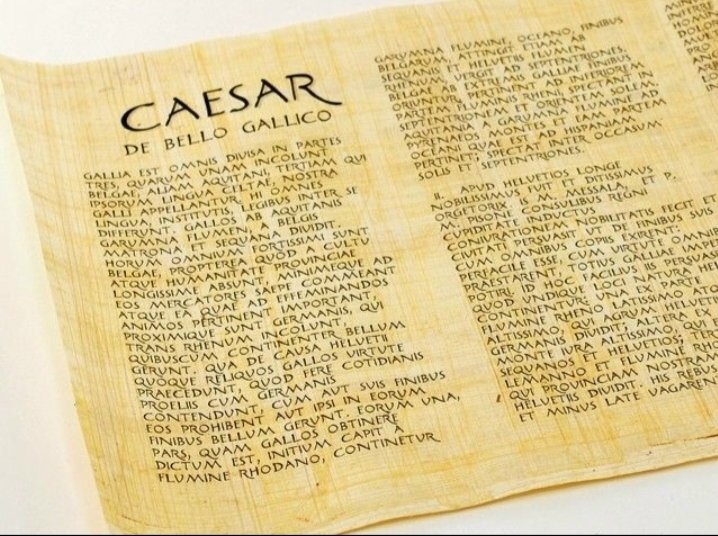 CAESAR
DE BELLO GALLICO
GALLIA EST OMNIS DIUISA IN PARTES
TRES, QUARUM UNAM INCOLUNT
BELGAE, ALIAM AQUITANI, TERTIAM QUI
IPSORUM LINGUA CELTAE, NOSTRA
GALLI APPELLANTUR. HI OMNES
LINGUA, INSTITUTIS, LEGIBUS INTER SE
DIFFERUNT. GALLOS AB AQUITANIS
GARUMNA FLUMEN, A BELGIS
MATRONA ET SEQUANA DIUIDIT.
HORUM OMNIUM FORTISSIMI SUNT
BELGAE, PROPTEREA QUOD A CULTU
ATQUE HUMANITATE PROUINCIAE
LONGISSIME ABSUNT, MINIMEQUE AD
EOS MERCATORES SAEPE COMMEANT
ATQUE EA QUAE AD EFFEMINANDOS
ANIMOS PERTINENT IMPORTANT,
PROXIMIQUE SUNT GERMANIS, QUI
TRANS RHENUM INCOLUNT,
QUIBUSCUM CONTINENTER BELLUM
GERUNT. QUA DE CAUSA HELUETII
QUOQUE RELIQUOS GALLOS UIRTUTE
PRAECEDUNT, QUOD FERE COTIDIANIS
PROELIIS CUM GERMANIS
CONTENDUNT, CUM AUT SUIS FINIBUS
EOS PROHIBENT AUT IPSI IN EORUM
FINIBUS BELLUM GERUNT. EORUM UNA,
PARS, QUAM GALLOS OBTINERE
DICTUM EST, INITIUM CAPIT A
FLUMINE RHODANO, CONTINETUR
GARUMNA FLUMINE, OCEANO, FINIBUS
BELGARUM, ATTINGIT ETIAM AB
SEQUANIS ET HELUETIIS FLUMEN
RHENUM, UERGIT AD SEPTENTRIONES.
BELGAE AB EXTREMIS GALLIAE FINIBUS
ORIUNTUR, PERTINENT AD INFERIOREM
PARTEM FLUMINIS RHENI, SPECTANT IN
SEPTENTRIONEM ET ORIENTEM SOLEM.
AQUITANIA A GARUMNA FLUMINE AD
PYRENAEOS MONTES ET EAM PARTEM
OCEANI QUAE EST AD HISPANIAM
PERTINET; SPECTAT INTER OCCASUM
SOLIS ET SEPTENTRIONES.
II. APUD HELUETIOS LONGE
NOBILISSIMUS FUIT ET DITISSIMUS
ORGETORIX. IS M. MESSALA, ET P.
M. PISONE CONSULIBUS REGNI
CUPIDITATE INDUCTUS
CONIURATIONEM NOBILITATIS FECIT ET
CIUITATI PERSUASIT UT DE FINIBUS SUIS
CUM OMNIBUS COPIIS EXIRENT:
PERFACILE ESSE, CUM UIRTUTE OMNIB
PRAESTARENT, TOTIUS GALLIAE IMPERI
POTIRI. ID HOC FACILIUS IIS PERSUAS
QUOD UNDIQUE LOCI NATURA HEL
CONTINENTUR: UNA EX PARTE
FLUMINE RHENO LATISSIMO ATQ
ALTISSIMO, QUI AGRUM HELUE
GERMANIS DIUIDIT; ALTERA EX
MONTE IURA ALTISSIMO, QUI
SEQUANOS ET HELUETIOS; TER
LEMANNO ET FLUMINE RHO
QUI PROUINCIAM NOSTRAM
HELUETIIS DIUIDIT. HIS REBUS
ET MINUS LATE UAGAREN